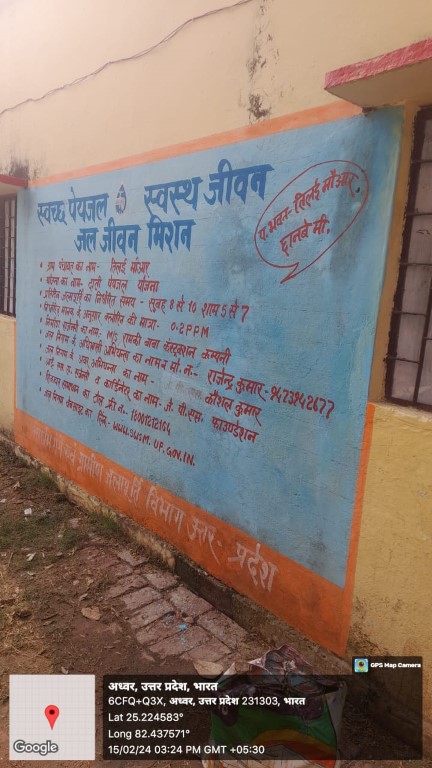 स्वच्छ पेयजल स्वस्थ जीवन
जल जीवन मिशन
ए.भवन- तिलई मौआर
छानवे मी.
ग्राम पंचायत का नाम- तिलई मौआर
योजना का नाम- दाती पेयजल योजना
प्रतिदिन जलापूर्ति का निर्धारित समय - सुबह 8 से 10 शाम 5 से 7
निर्धारित मानक के अनुसार क्लोरीन की मात्रा. 0.2 PPM
निर्माण एजेन्सी का नाम- M/S रामकी बाबा कंस्ट्रक्शन कम्पनी
जल निगम के अधिशासी अभियन्ता का नाम व मो. न.- राजेन्द्र कुमार- 9473942677
जल निगम के सहायक अभियन्ता का नाम - कौशल कुमार
आई. एस. ए. एजेन्सी व कार्डिनेटर का नाम- जे. पी. एस. फाउण्डेशन
शिकायत समाधान का टोल फ्री न०- 18001212164
जल निगम वेबसाइट का लिंक- WWW.SWSM.UP.GOV.IN.
ग्रामीण जलापूर्ति विभाग उत्तर- प्रदेश
GPS Map Camera
अध्वर, उत्तर प्रदेश, भारत
6CFQ+Q3X, अध्वर, उत्तर प्रदेश 231303, भारत
Lat 25.224583°
Long 82.437571°
15/02/24 03:24 PM GMT +05:30
Google